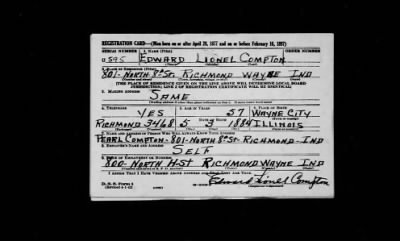 REGISTRATION CARD—(Men born on or after April 28, 1877 and on or before February 16, 1897)
SERIAL NUMBER 1. NAME (Print) ORDER NUMBER
595 EDWARD LIONEL COMPTON
2. PLACE OF RESIDENCE (Print)
801-NORTH 8th St. RICHMOND WAYNE IND
[THE PLACE OF RESIDENCE GIVEN ON THE LINE ABOVE WILL DETERMINE LOCAL BOARD
JURISDICTION; LINE 2 OF REGISTRATION CERTIFICATE WILL BE IDENTICAL]
3. MAILING ADDRESS
SAME
4. TELEPHONE 5. AGE IN YEARS 6. PLACE OF BIRTH
YES 57 WAYNE CITY
DATE OF BIRTH
RICHMOND 3468 5 3 1884 ILLINOIS
7. NAME AND ADDRESS OF PERSON WHO WILL ALWAYS KNOW YOUR ADDRESS
PEARL COMPTON-801-NORTH 8th St-RICHMOND-IND
8. EMPLOYER'S NAME AND ADDRESS
SELF
9. PLACE OF EMPLOYMENT OR BUSINESS
800-NORTH H-ST RICHMOND WAYNE IND
I AFFIRM THAT I HAVE VERIFIED ABOVE ANSWERS AND THAT THEY ARE TRUE.
D. S. S. Form 1
Edward Lionel Compton